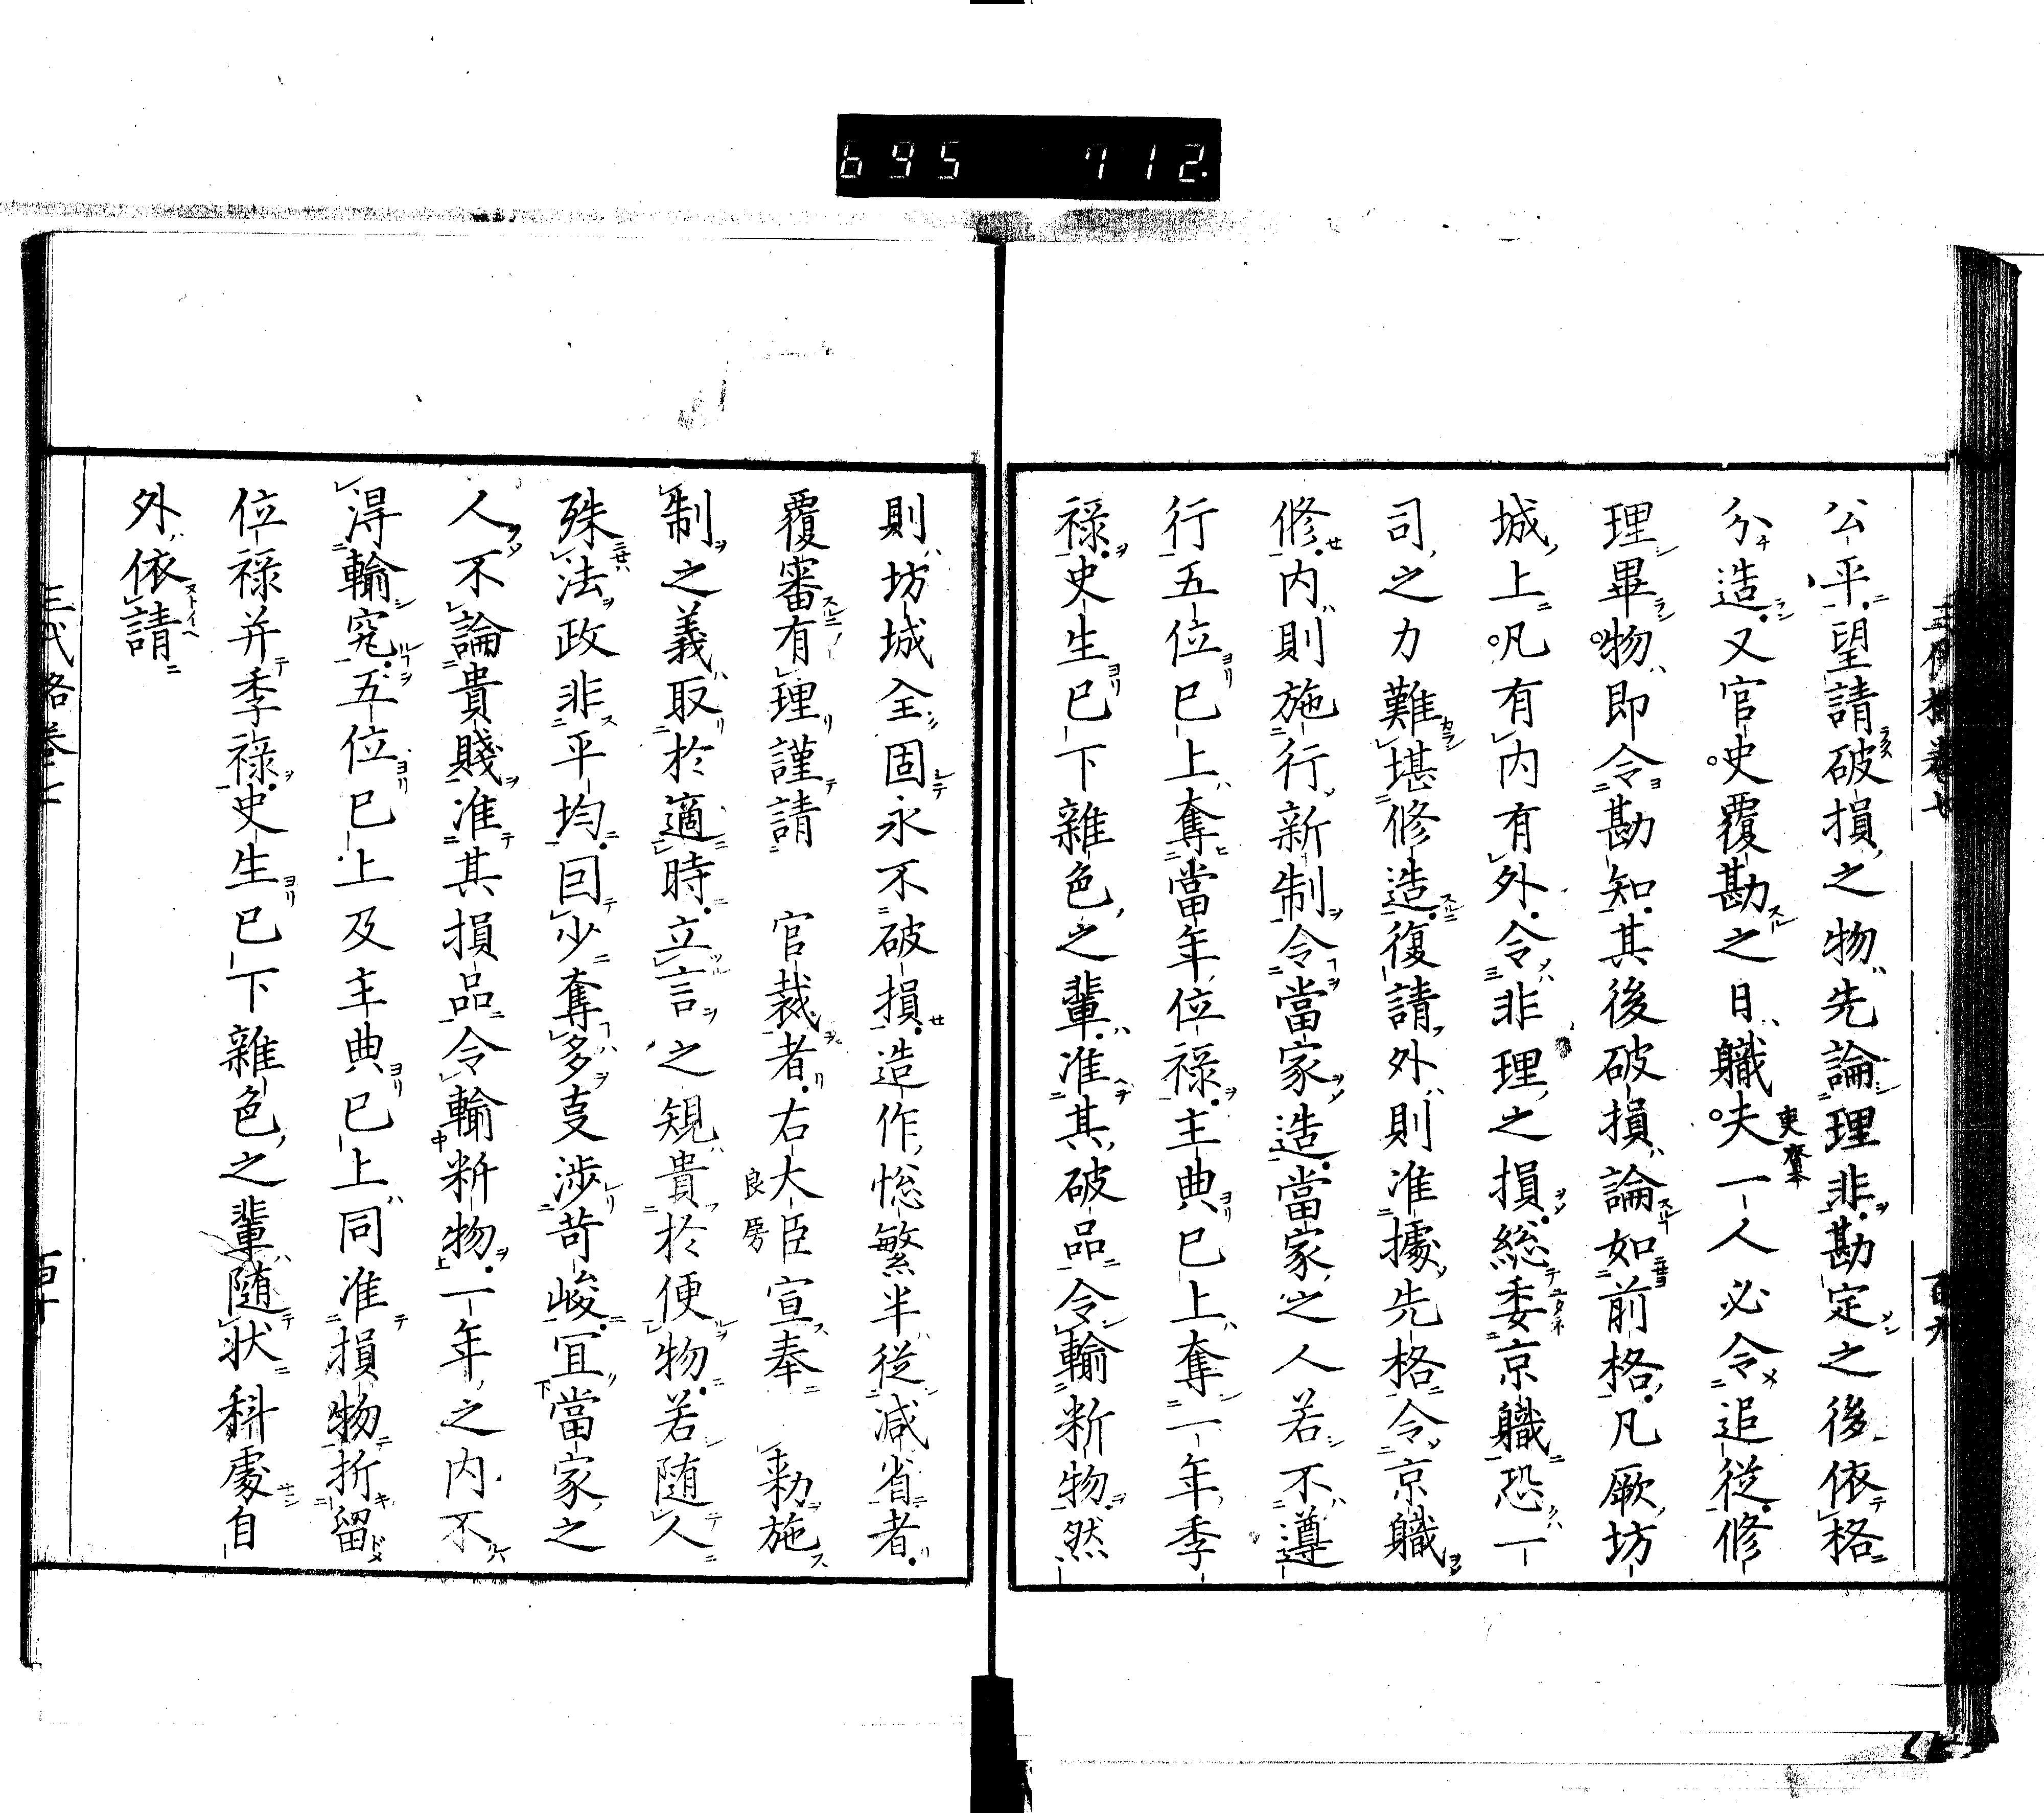 695 712.
公平望請破損之物先論理非勘定之後依格
分造又官史覆勘之日職夫一人必令追從修
吏
理畢物即令勘知其後破損論如前格凡厥坊
城上凡有内有外令非理之損総委京職恐丁
司之力難堪修造復請外則准據先格令京職
修内則施行新制令當家造當家之人若不遵
行五位已上奪當年位禄主典已上奪一年季
禄史生已下雜色之輩准其破品令輸断物然
則坊城全固永不破損造作惣繁半從減省者
覆審有理謹請　官裁者右大臣宣奉　勅施
良房
制之義取於適時立言之規貴於便物若随人
殊法政非平均囙少奪多支渉苛峻冝當家之
人不論貴賤准其損品令輸断物一年之内不
淂輸究五位已上及主典已上同准損物折留
位禄并季禄史生已下雜色之輩随状科處自
外依請
三代格巻七